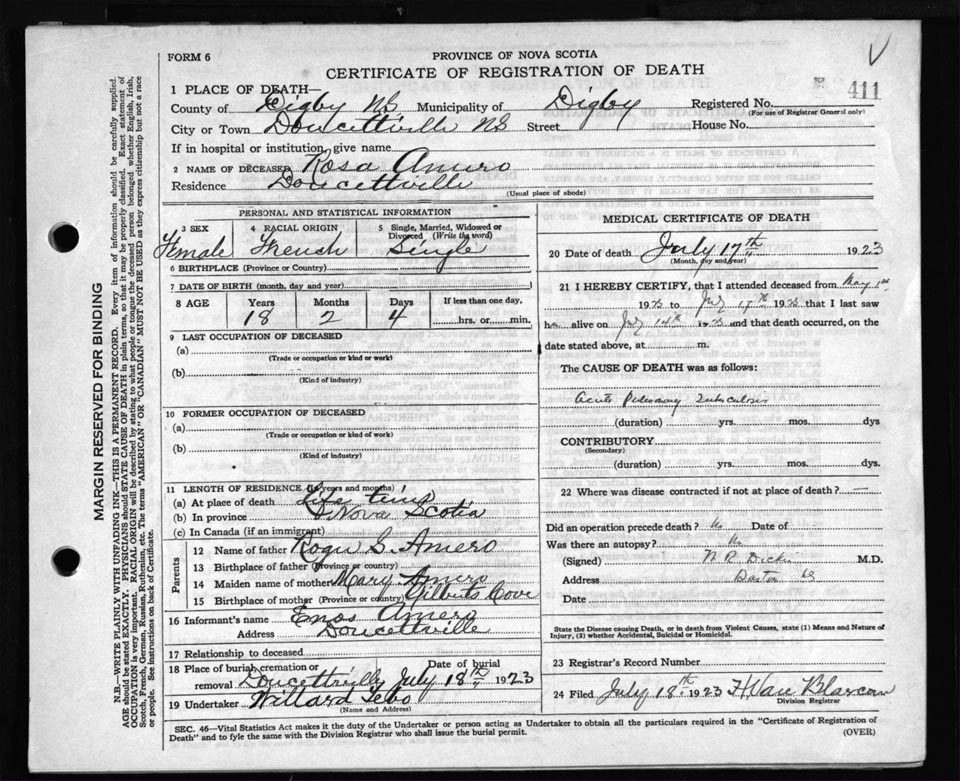 FORM 6
PROVINCE OF NOVA SCOTIA
CERTIFICATE OF REGISTRATION OF DEATH
1 PLACE OF DEATH—
County of Digby NS Municipality of Digby Registered No. 411
(For use of Registrar General only)
City or Town Doucettville NS Street House No.
If in hospital or institution, give name
2 NAME OF DECEASED Rosa Amero
Residence Doucettville
(Usual place of abode)
PERSONAL AND STATISTICAL INFORMATION
3 SEX 4 RACIAL ORIGIN 5 Single, Married, Widowed or Divorced (Write the word)
Female French Single
6 BIRTHPLACE (Province or Country)
7 DATE OF BIRTH (month, day and year)
8 AGE Years Months Days If less than one day,
18 2 4 hrs. or min.
9 LAST OCCUPATION OF DECEASED
(a)
(Trade or occupation or kind or work)
(b)
(Kind of industry)
10 FORMER OCCUPATION OF DECEASED
(a)
(Trade or occupation or kind of work)
(b)
(Kind of industry)
11 LENGTH OF RESIDENCE (In years and months)
(a) At place of death Life time
(b) In province Nova Scotia
(c) In Canada (if an immigrant)
Parents
12 Name of father S. Amero
13 Birthplace of father (Province or country)
14 Maiden name of mother Mary Amero
15 Birthplace of mother (Province or country) Gilberts Cove
16 Informant's name Enos Amero
Address Doucettville
17 Relationship to deceased
18 Place of burial, cremation or removal Date of burial
Doucettville July 18th 1923
19 Undertaker Willard
(Name and Address)
MEDICAL CERTIFICATE OF DEATH
20 Date of death July 17th 1923
(Month, day and year)
21 I HEREBY CERTIFY, that I attended deceased from May 1st
1923 to July 17th 1923 that I last saw
her alive on July 14th 1923 and that death occurred, on the
date stated above, at m.
The CAUSE OF DEATH was as follows:
acute Pulmonary Tuberculosis
(duration) yrs. mos. dys
CONTRIBUTORY
(Secondary)
(duration) yrs. mos. dys.
22 Where was disease contracted if not at place of death?
Did an operation precede death? No Date of
Was there an autopsy? No
(Signed) M.D.
Address
Date
State the Disease causing Death, or in death from Violent Causes, state (1) Means and Nature of
Injury, (2) whether Accidental, Suicidal or Homicidal.
23 Registrar's Record Number
24 Filed July 18th 1923 H Van Blarcom
Division Registrar
SEC. 46—Vital Statistics Act makes it the duty of the Undertaker or person acting as Undertaker to obtain all the particulars required in the "Certificate of Registration of
Death" and to fyle the same with the Division Registrar who shall issue the burial permit. (OVER)
MARGIN RESERVED FOR BINDING
N.B.—WRITE PLAINLY WITH UNFADING INK—THIS IS A PERMANENT RECORD. Every item of information should be carefully supplied.
AGE should be stated EXACTLY. PHYSICIANS should STATE CAUSE OF DEATH in plain terms, so that it may be properly classified. Exact statement of
OCCUPATION is very important. RACIAL ORIGIN will be described by stating to what people or tongue the deceased person belonged whether English, Irish,
Scotch, French, German, Russian, Ruthenian, etc. The terms "AMERICAN" OR "CANADIAN" MUST NOT BE USED as they express citizenship but not a race
or people. See instructions on back of Certificate.